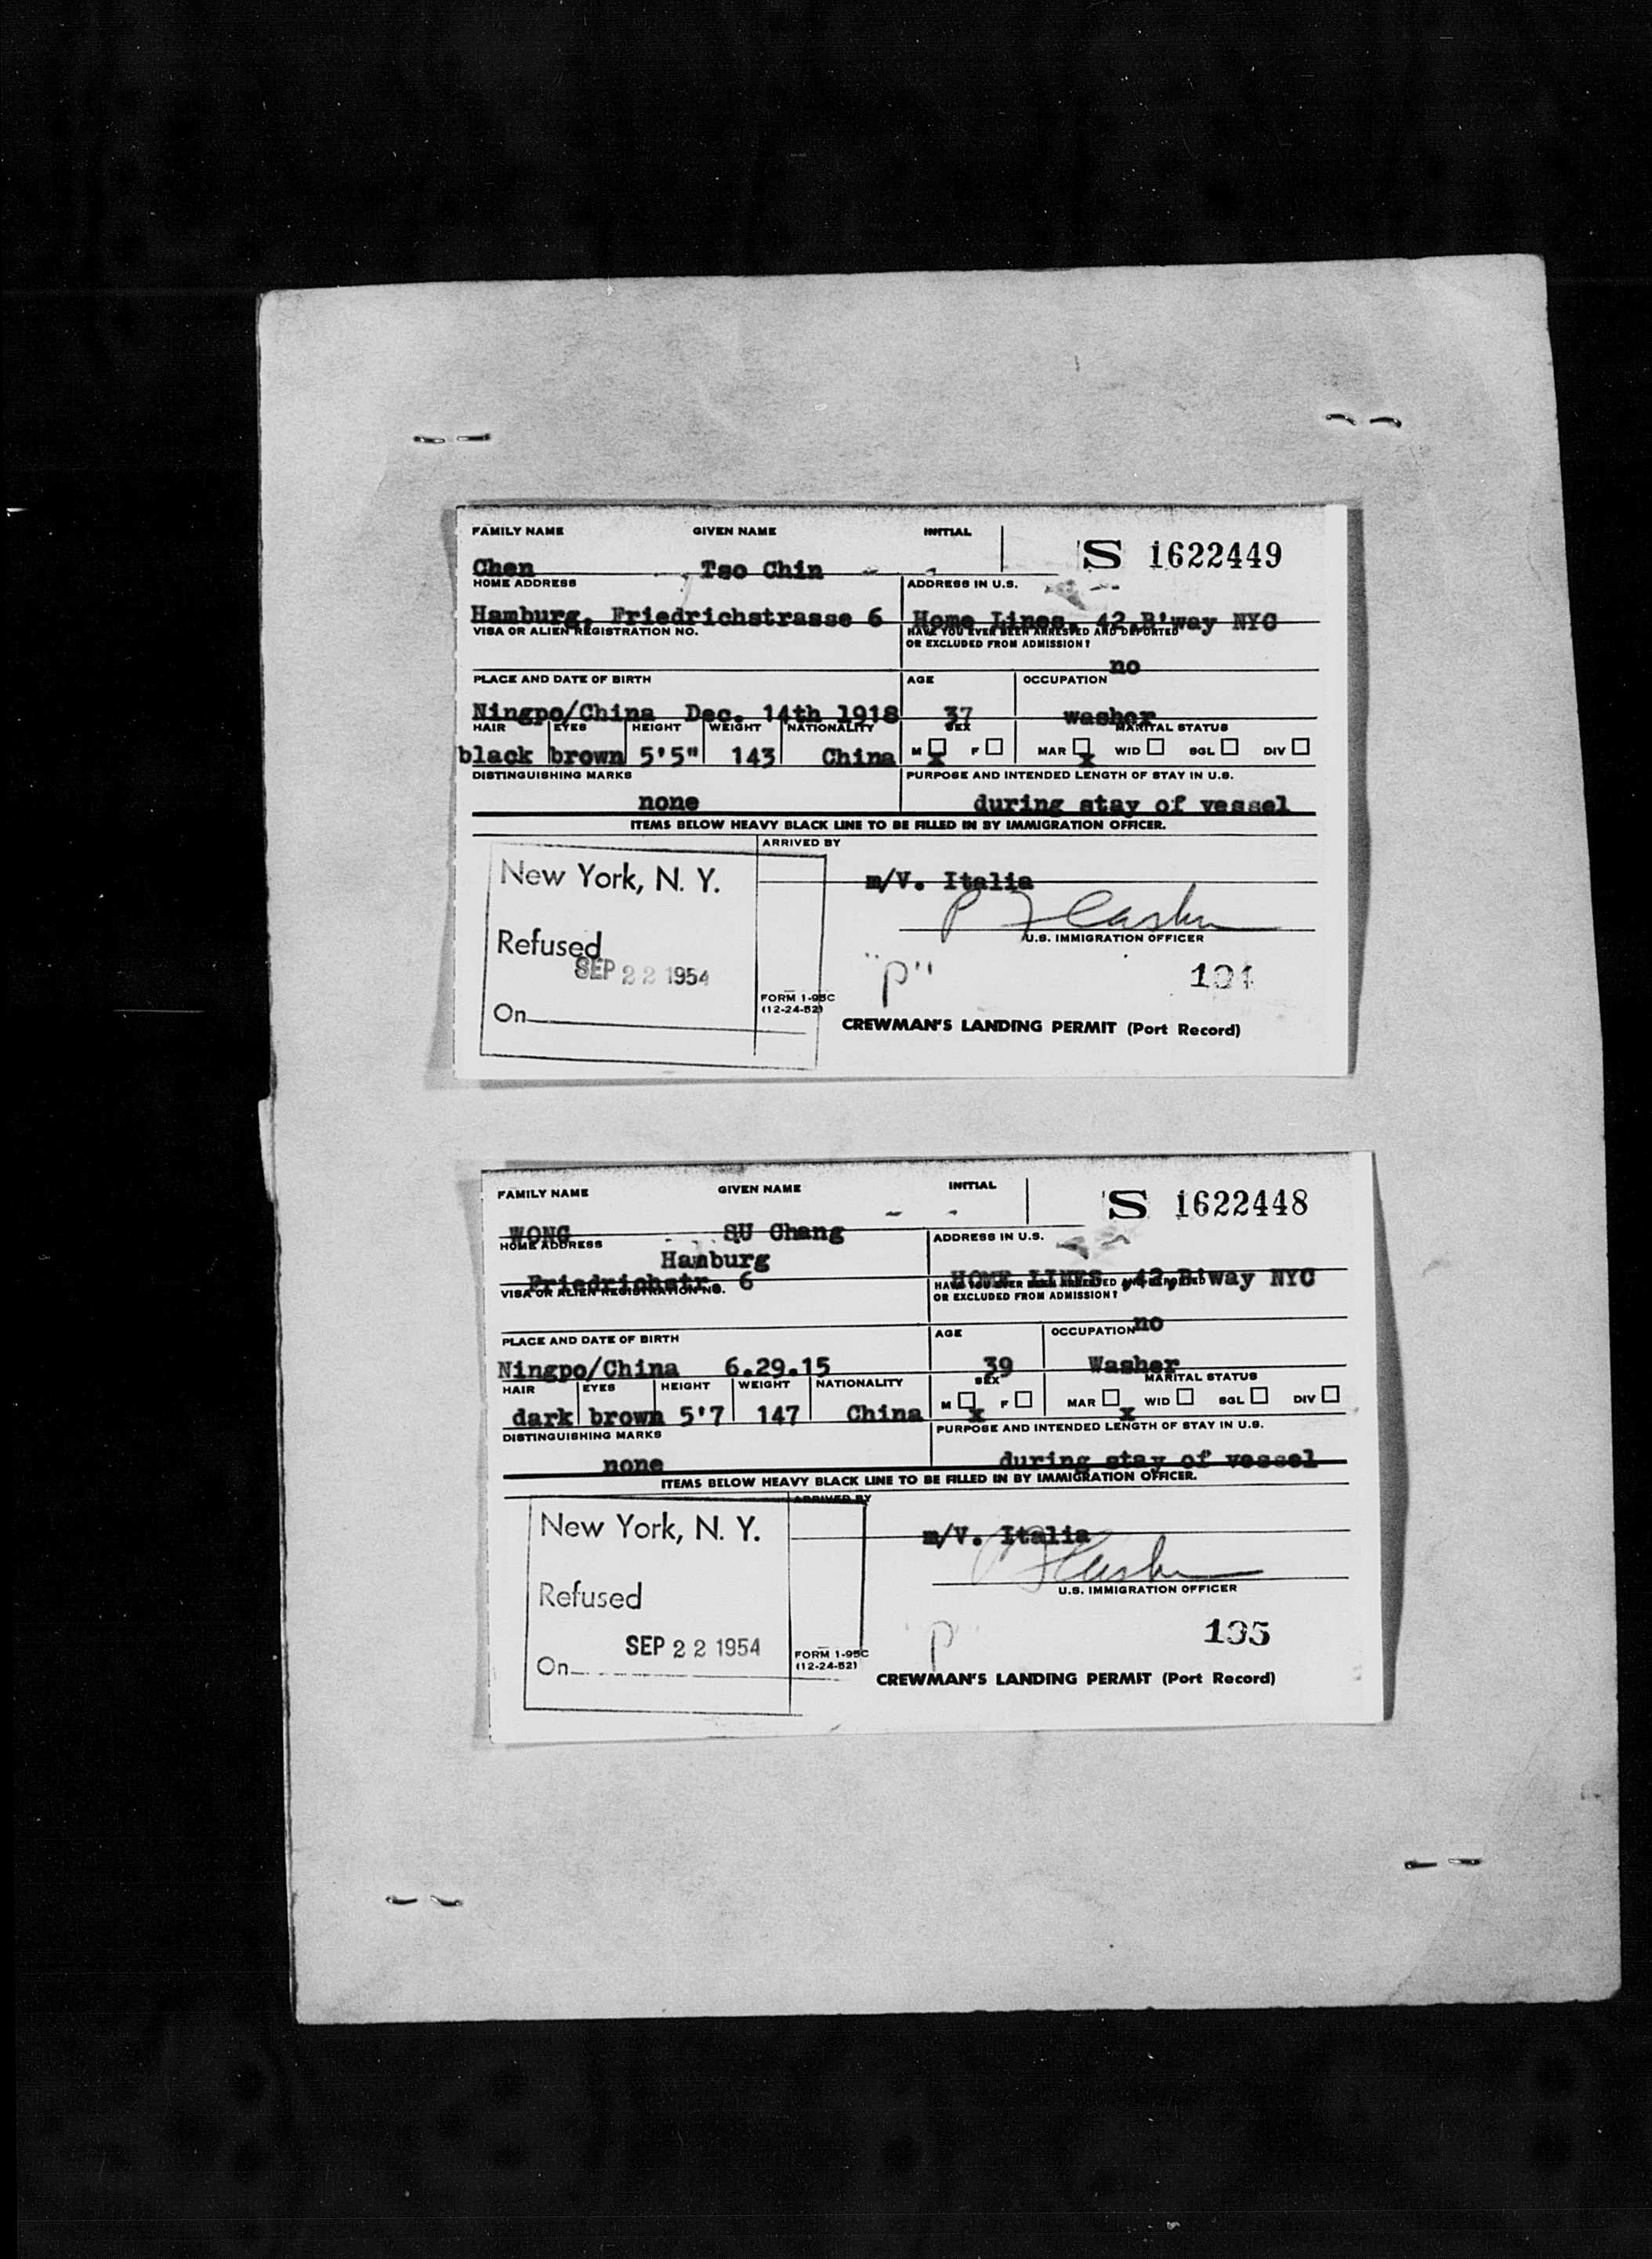 FAMILY NAME GIVEN NAME INITIAL S 1622449
Chen Tso Chin - -
HOME ADDRESS ADDRESS IN U.S.
Hamburg, Friedrichstrasse 6 Home Lines, 42,B'way NYC
VISA OR ALIEN REGISTRATION NO. HAVE YOU EVER BEEN ARRESTED AND DEPORTED
OR EXCLUDED FROM ADMISSION?
no
PLACE AND DATE OF BIRTH AGE OCCUPATION
Ningpo/China Dec. 14th 1918 37 washer
HAIR EYES HEIGHT WEIGHT NATIONALITY SEX MARITAL STATUS
black brown 5'5" 143 China M x F MAR x WID SGL DIV
DISTINGUISHING MARKS PURPOSE AND INTENDED LENGTH OF STAY IN U.S.
none during stay of vessel
ITEMS BELOW HEAVY BLACK LINE TO BE FILLED IN BY IMMIGRATION OFFICER.
ARRIVED BY
New York, N. Y. m/V. Italia
U.S. IMMIGRATION OFFICER
Refused
SEP 22 1954 "P"
On
FORM I-95C
(12-24-52)
CREWMAN'S LANDING PERMIT (Port Record)
FAMILY NAME GIVEN NAME INITIAL S 1622448
WONG SU Chang - -
HOME ADDRESS ADDRESS IN U.S.
Hamburg
Friedrichstr. 6 HOME LINES, 42,B'way NYC
VISA OR ALIEN REGISTRATION NO. HAVE YOU EVER BEEN ARRESTED AND DEPORTED
OR EXCLUDED FROM ADMISSION?
no
PLACE AND DATE OF BIRTH AGE OCCUPATION
Ningpo/China 6.29.15 39 Washer
HAIR EYES HEIGHT WEIGHT NATIONALITY SEX MARITAL STATUS
dark brown 5'7 147 China M x F MAR x WID SGL DIV
DISTINGUISHING MARKS PURPOSE AND INTENDED LENGTH OF STAY IN U.S.
none during stay of vessel
ITEMS BELOW HEAVY BLACK LINE TO BE FILLED IN BY IMMIGRATION OFFICER.
ARRIVED BY
New York, N. Y. m/V. Italia
U.S. IMMIGRATION OFFICER
Refused
195
SEP 22 1954 "P"
On
FORM I-95C
(12-24-52)
CREWMAN'S LANDING PERMIT (Port Record)